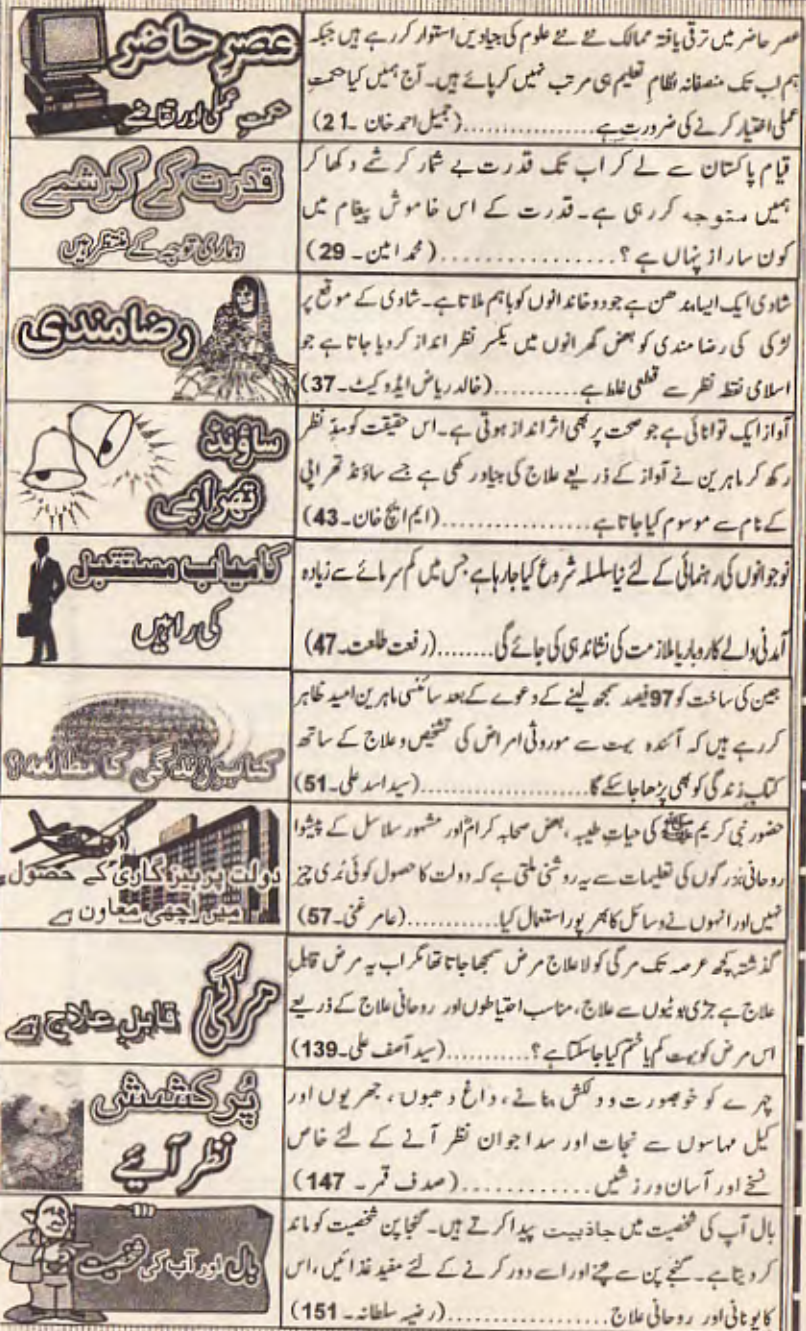 عصرِ حاضر
حکمتِ عملی اور تقاضے
عصر حاضر میں ترقی یافتہ ممالک نئے نئے علوم کی بنیادیں استوار کر رہے ہیں جبکہ
ہم اب تک منصفانہ نظامِ تعلیم ہی مرتب نہیں کر پائے ہیں۔ آج ہمیں کیا حکمتِ
عملی اختیار کرنے کی ضرورت ہے................(جمیل احمد خان ۔21)
قدرت کے کرشمے
ہماری توجہ کے منتظر ہیں
قیام پاکستان سے لے کر اب تک قدرت بے شمار کرشمے دکھا کر
ہمیں متوجہ کر رہی ہے۔ قدرت کے اس خاموش پیغام میں
کون سا راز پنہاں ہے ؟................(محمد امین۔ 29)
رضامندی
شادی ایک ایسا بندھن ہے جو دو خاندانوں کو باہم ملاتا ہے۔ شادی کے موقع پر
لڑکی کی رضا مندی کو بعض گھرانوں میں یکسر نظر انداز کر دیا جاتا ہے جو
اسلامی نقطہ نظر سے قطعی غلط ہے..........(خالد ریاض ایڈوکیٹ۔37)
ساؤنڈ
تھراپی
آواز ایک توانائی ہے جو صحت پر بھی اثر انداز ہوتی ہے۔ اس حقیقت کو مدِ نظر
رکھ کر ماہرین نے آواز کے ذریعے علاج کی بنیاد رکھی ہے جسے ساؤنڈ تھراپی
کے نام سے موسوم کیا جاتا ہے................(ایم ایچ خان۔43)
کامیاب مستقبل
کی راہیں
نوجوانوں کی رہنمائی کے لئے نیا سلسلہ شروع کیا جا رہا ہے جس میں کم سرمائے سے زیادہ
آمدنی والے کاروبار یا ملازمت کی نشاندہی کی جائے گی........(رفعت طلعت۔47)
کتابِ زندگی کا مطالعہ؟
جین کی ساخت کو 97 فیصد سمجھ لینے کے دعوے کے بعد سائنسی ماہرین امید ظاہر
کر رہے ہیں کہ آئندہ بہت سے موروثی امراض کی تشخیص و علاج کے ساتھ
کتابِ زندگی کو بھی پڑھا جاسکے گا....................(سید اسد علی۔51)
دولت پرہیزگاری کے حصول
میں اچھی معاون ہے
حضور نبی کریم ﷺ کی حیاتِ طیبہ ، بعض صحابہ کرامؓ اور مشہور سلاسل کے پیشوا
روحانی بزرگوں کی تعلیمات سے یہ روشنی ملتی ہے کہ دولت کا حصول کوئی بُری چیز
نہیں اور انہوں نے وسائل کا بھرپور استعمال کیا............(عامر غنی۔57)
مرگی قابلِ علاج ہے
گذشتہ کچھ عرصہ تک مرگی کو لاعلاج مرض سمجھا جاتا تھا مگر اب یہ مرض قابلِ
علاج ہے جڑی بوٹیوں سے علاج، مناسب احتیاطوں اور روحانی علاج کے ذریعے
اس مرض کو بہت کم یا ختم کیا جاسکتا ہے ؟..........(سید آصف علی۔139)
پُرکشش
نظر آیئے
چہرے کو خوبصورت و دلکش بنانے ، داغ دھبوں ، جھریوں اور
کیل مہاسوں سے نجات اور سدا جوان نظر آنے کے لئے خاص
نسخے اور آسان ورزشیں............(صدف قمر۔ 147)
بال اور آپ کی شخصیت
بال آپ کی شخصیت میں جاذبیت پیدا کرتے ہیں۔ گنجاپن شخصیت کو ماند
کر دیتا ہے۔ گنجے پن سے بچنے اور اسے دور کرنے کے لئے مفید غذائیں ، اس
کا یونانی اور روحانی علاج..................(رضیہ سلطانہ۔ 151)